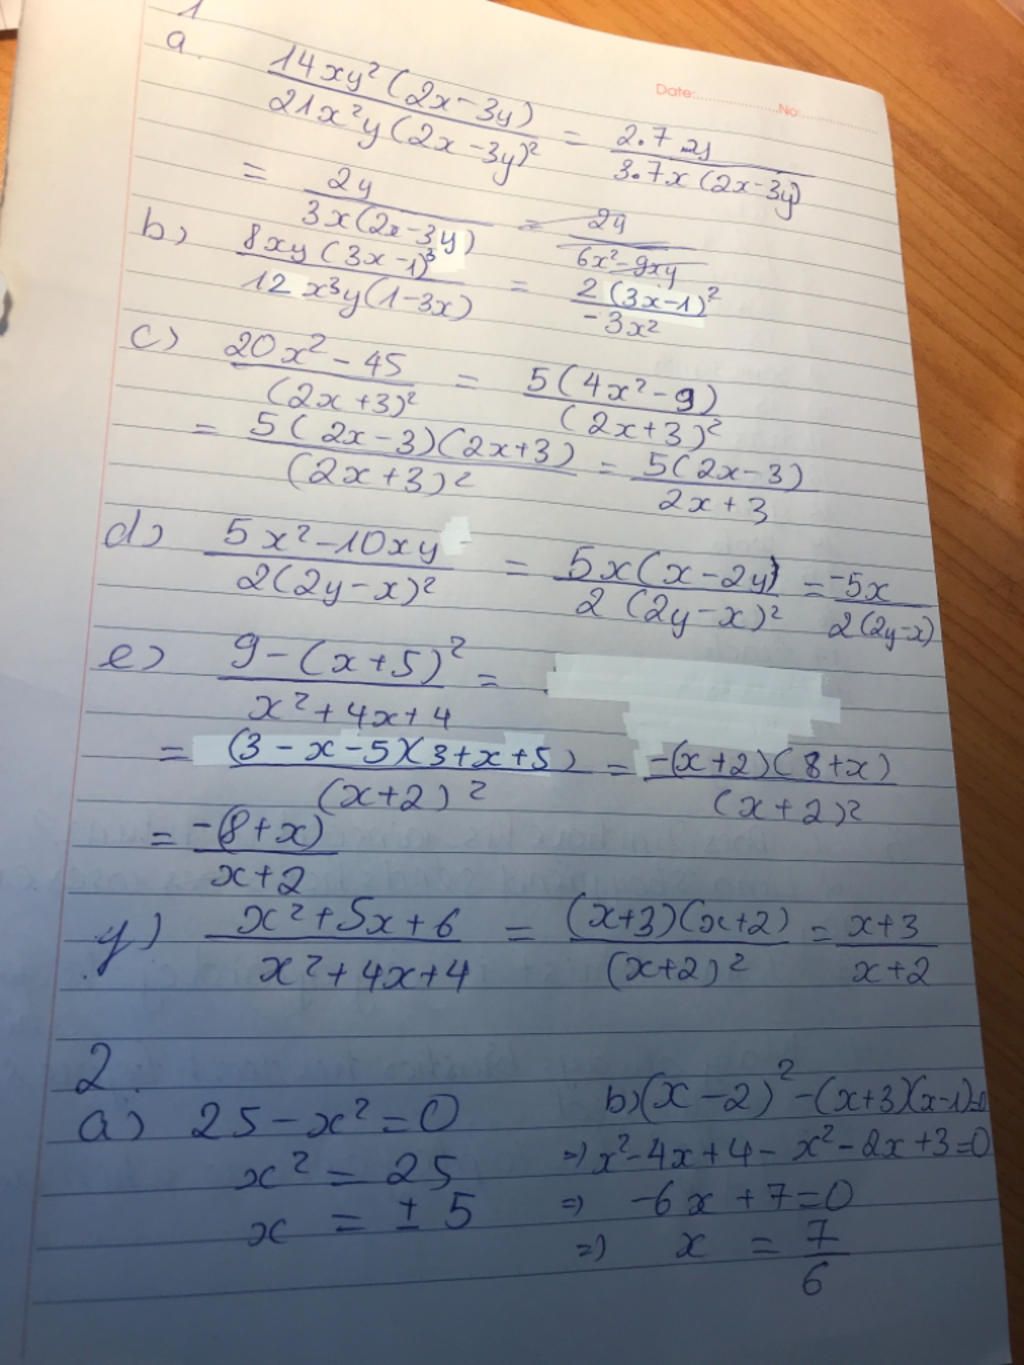 1
Date:.............No:.............
a. 14xy²(2x-3y) / 21x²y(2x-3y)² = 2.7 2y / 3.7x(2x-3y)
= 2y / 3x(2x-3y) = 2y / 6x²-9xy
b) 8xy(3x-1)³ / 12x³y(1-3x) = 2(3x-1)² / -3x²
c) 20x²-45 / (2x+3)² = 5(4x²-9) / (2x+3)²
= 5(2x-3)(2x+3) / (2x+3)² = 5(2x-3) / 2x+3
d) 5x²-10xy / 2(2y-x)² = 5x(x-2y) / 2(2y-x)² = -5x / 2(2y-x)
e) 9-(x+5)² / x²+4x+4 =
= (3-x-5)(3+x+5) / (x+2)² = -(x+2)(8+x) / (x+2)²
= -(8+x) / x+2
y) x²+5x+6 / x²+4x+4 = (x+3)(x+2) / (x+2)² = x+3 / x+2
2.
a) 25-x²=0
x² = 25
x = ±5
b) (x-2)²-(x+3)(x-1)=0
=) x²-4x+4-x²-2x+3=0
=) -6x+7=0
=) x = 7 / 6